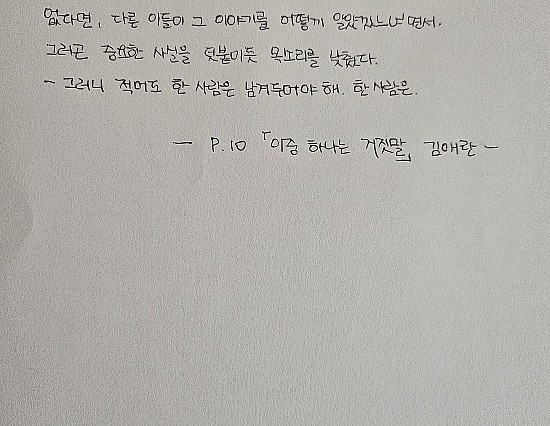 없다면, 다른 이들이 그 이야기를 어떻게 알았겠느냐면서.
그러곤 중요한 사실을 덧붙이듯 목소리를 낮췄다.
- 그러니 적어도 한 사람은 남겨두어야 해. 한 사람은.
- P.10 「이중 하나는 거짓말」, 김애란 -